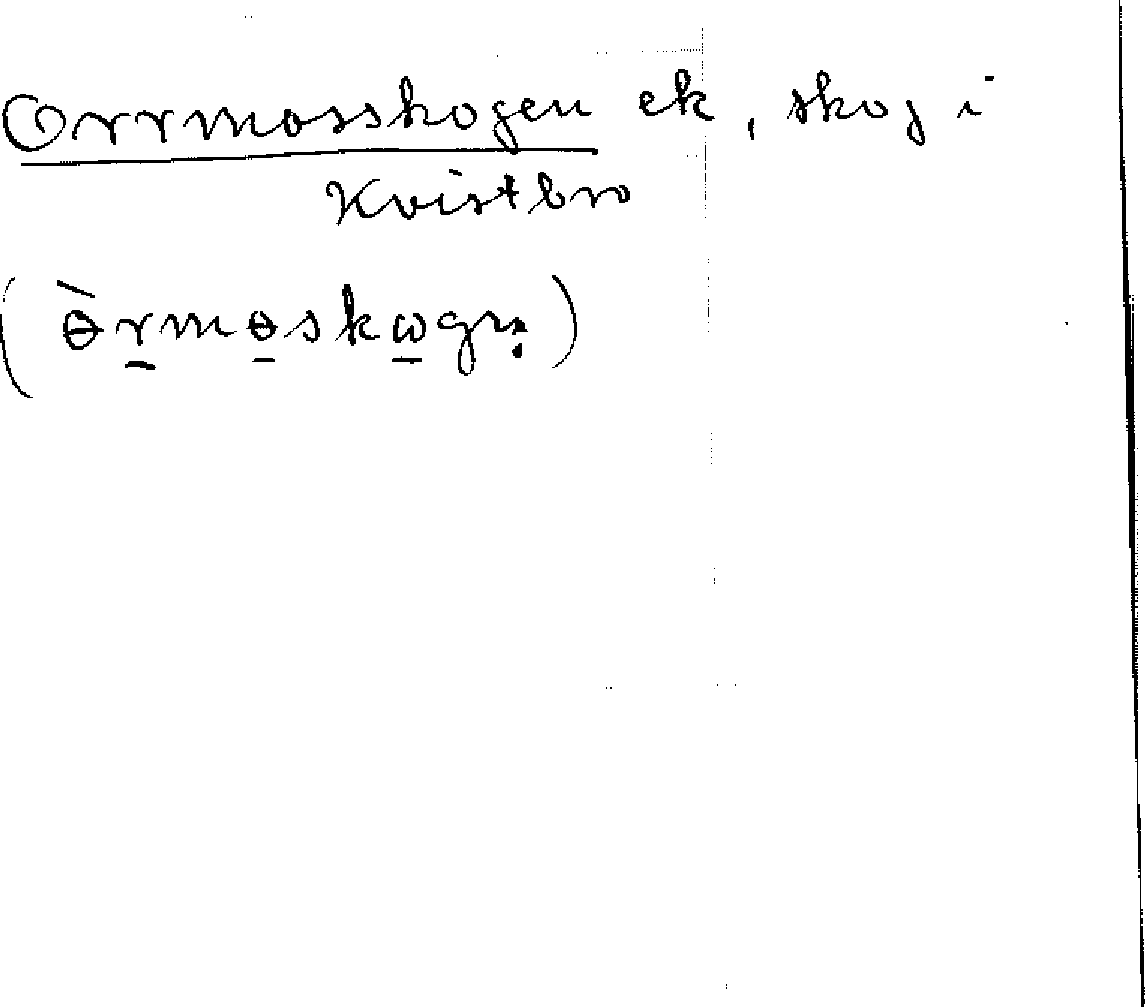 Orrmosskogen ek, skog i
Kvistbro
(ɵ̀r̲mɵ̲skω̲gn̥)